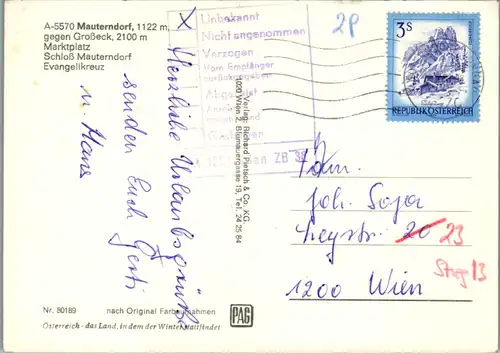 A-5570 Mauterndorf, 1122 m,
gegen Großeck, 2100 m
Marktplatz
Schloß Mauterndorf
Evangelikreuz
Unbekannt
Nicht angenommen
Verzogen
Vom Empfänger
zurückgegeben
2P
3S
REPUBLIK ÖSTERREICH
x Herzliche Urlaubsgrüße
senden Euch Gerti
u. Hans
Verlag: Richard Pietsch & Co. KG.
1020 Wien 2, Blumauergasse 19, Tel. 24 25 84
ZB 32
Fam.
Joh. Soja
Leystr. 20 23
Stieg 13
1200 Wien
Nr. 80189
nach Original Farbaufnahmen
PAG
Österreich - das Land, in dem der Winter stattfindet